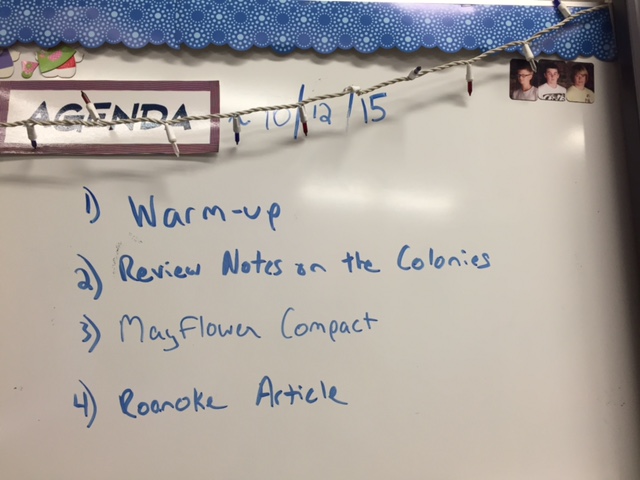 AGENDA 10/12/15
1) Warm-up
2) Review Notes on the Colonies
3) Mayflower Compact
4) Roanoke Article